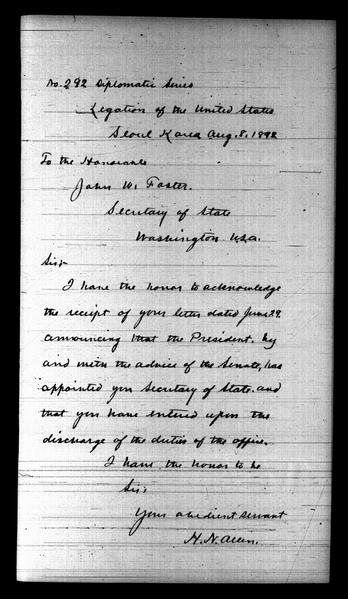 No. 292 Diplomatic Series
Legation of the United States
Seoul Korea Aug. 8, 1892
To the Honorable
John W. Foster.
Secretary of State
Washington U.S.A.
Sir:-
I have the honor to acknowledge
the receipt of your letter dated June 29
announcing that the President. by
and with the advice of the Senate, has
appointed you Secretary of State. and
that you have entered upon the
discharge of the duties of the office.
I have the honor to be
Sir;
Your obedient servant
H. N. Allen.